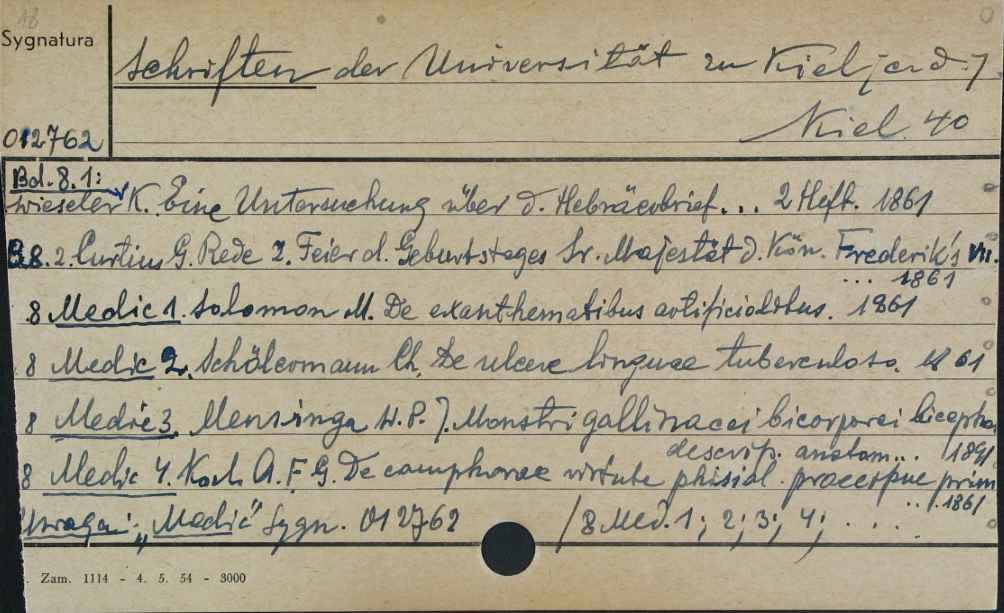 18
Sygnatura
Schriften der Universität zu Kiel
Kiel. 40
012762
Bd. 8. 1:
Wieseler K. Eine Untersuchung über d. Hebräerbrief... 2 Heft. 1861
8. 2. Curtius G. Rede z. Feier d. Geburtstages Sr. Majestät d. Kön. Frederik's VII.
... 1861
8 Medic 1. Solomon M. De exanthematibus artificialibus. 1861
8 Medic 2. Schölermann Ch. De ulcere linguae tuberculoso. 1861
8 Medic 3. Mensinga W. P. J. Monstri gallinacei bicorporei
descrip. anatom...
8 Medic 4. Koch A. F. G. De camphorae virtute phisiol. praecipue prim
... 1861
Uwaga: „Medic" Sygn. 012762 / 8 Med. 1; 2; 3; 4; ....
Zam. 1114 - 4. 5. 54 - 3000